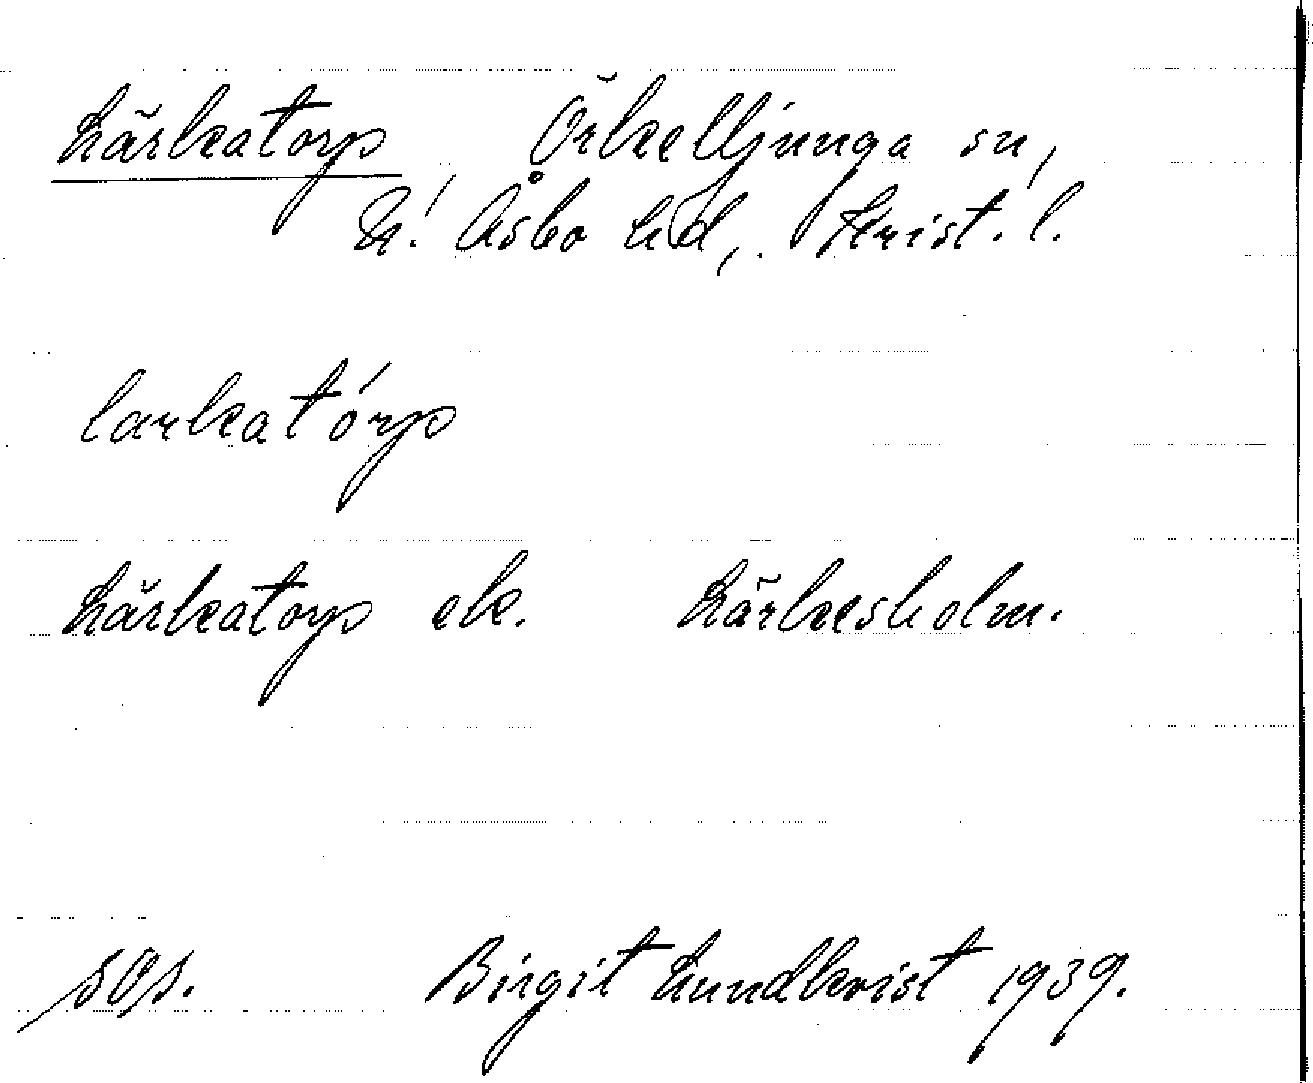 Lärkatorp, Örkelljunga sn,
N. Åsbo hd, Krist. l.
larkatórp
Lärkatorp ek. Lärkesholm.
sOs. Birgit Lundkvist 1939.